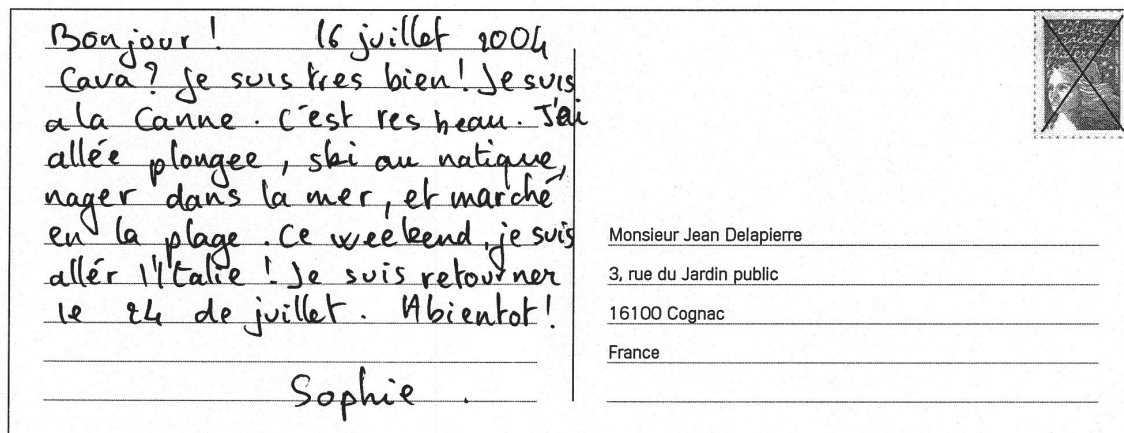 Bonjour! 16 juillet 2004
Cava? Je suis tres bien! Je suis
a la Canne. C'est res beau. J'ai
allée plongee, ski au natique,
nager dans la mer, et marché
en la plage. Ce weekend, je suis
allér l'Italie! Je suis retourner
le 24 de juillet. Abientot!
Sophie.
Monsieur Jean Delapierre
3, rue du Jardin public
16100 Cognac
France